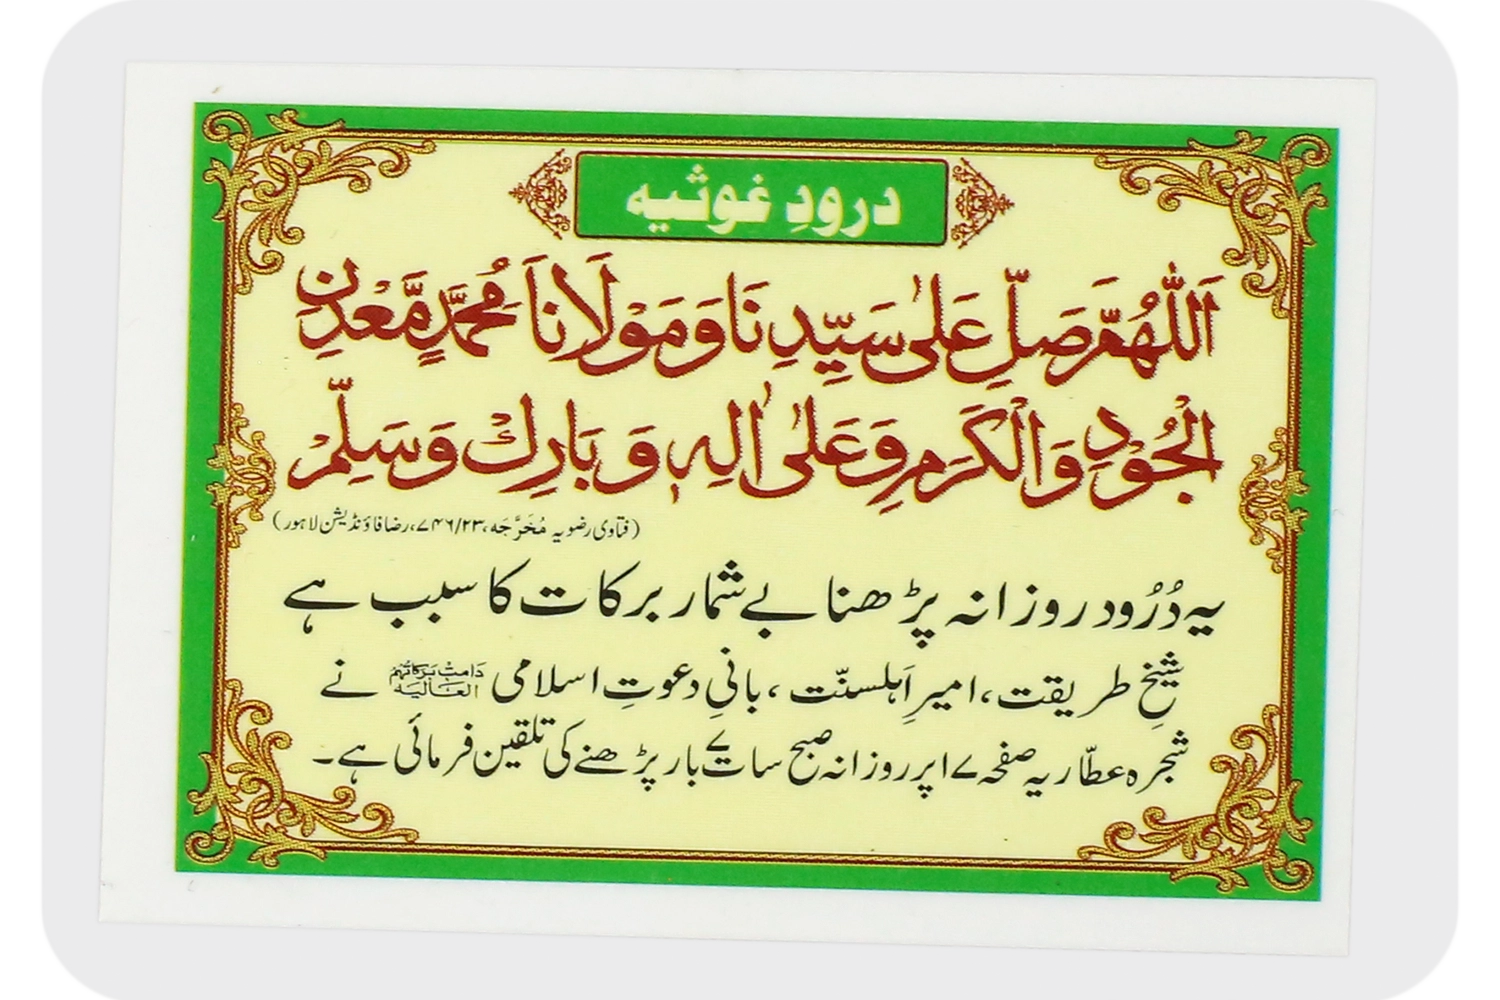 درودِ غوثیہ
اَللّٰهُمَّ صَلِّ عَلٰى سَيِّدِنَا وَمَوْلَانَا مُحَمَّدٍ مَّعْدِنِ
الْجُوْدِ وَالْكَرَمِ وَعَلٰى اٰلِهٖ وَبَارِكْ وَسَلِّمْ
(فتاوی رضویہ مُخَرَّجَہ، ۷۴۶/۲۳، رضا فاؤنڈیشن لاہور)
یہ دُرُود روزانہ پڑھنا بے شمار برکات کا سبب ہے
شیخِ طریقت، امیرِ اَہلسنّت، بانیِ دعوتِ اسلامی دَامَتْ بَرَکَاتُہُمُ الْعَالِیَہ نے
شجرہ عطّاریہ صفحہ ۱۷ پر روزانہ صبح سات ۷ بار پڑھنے کی تلقین فرمائی ہے۔